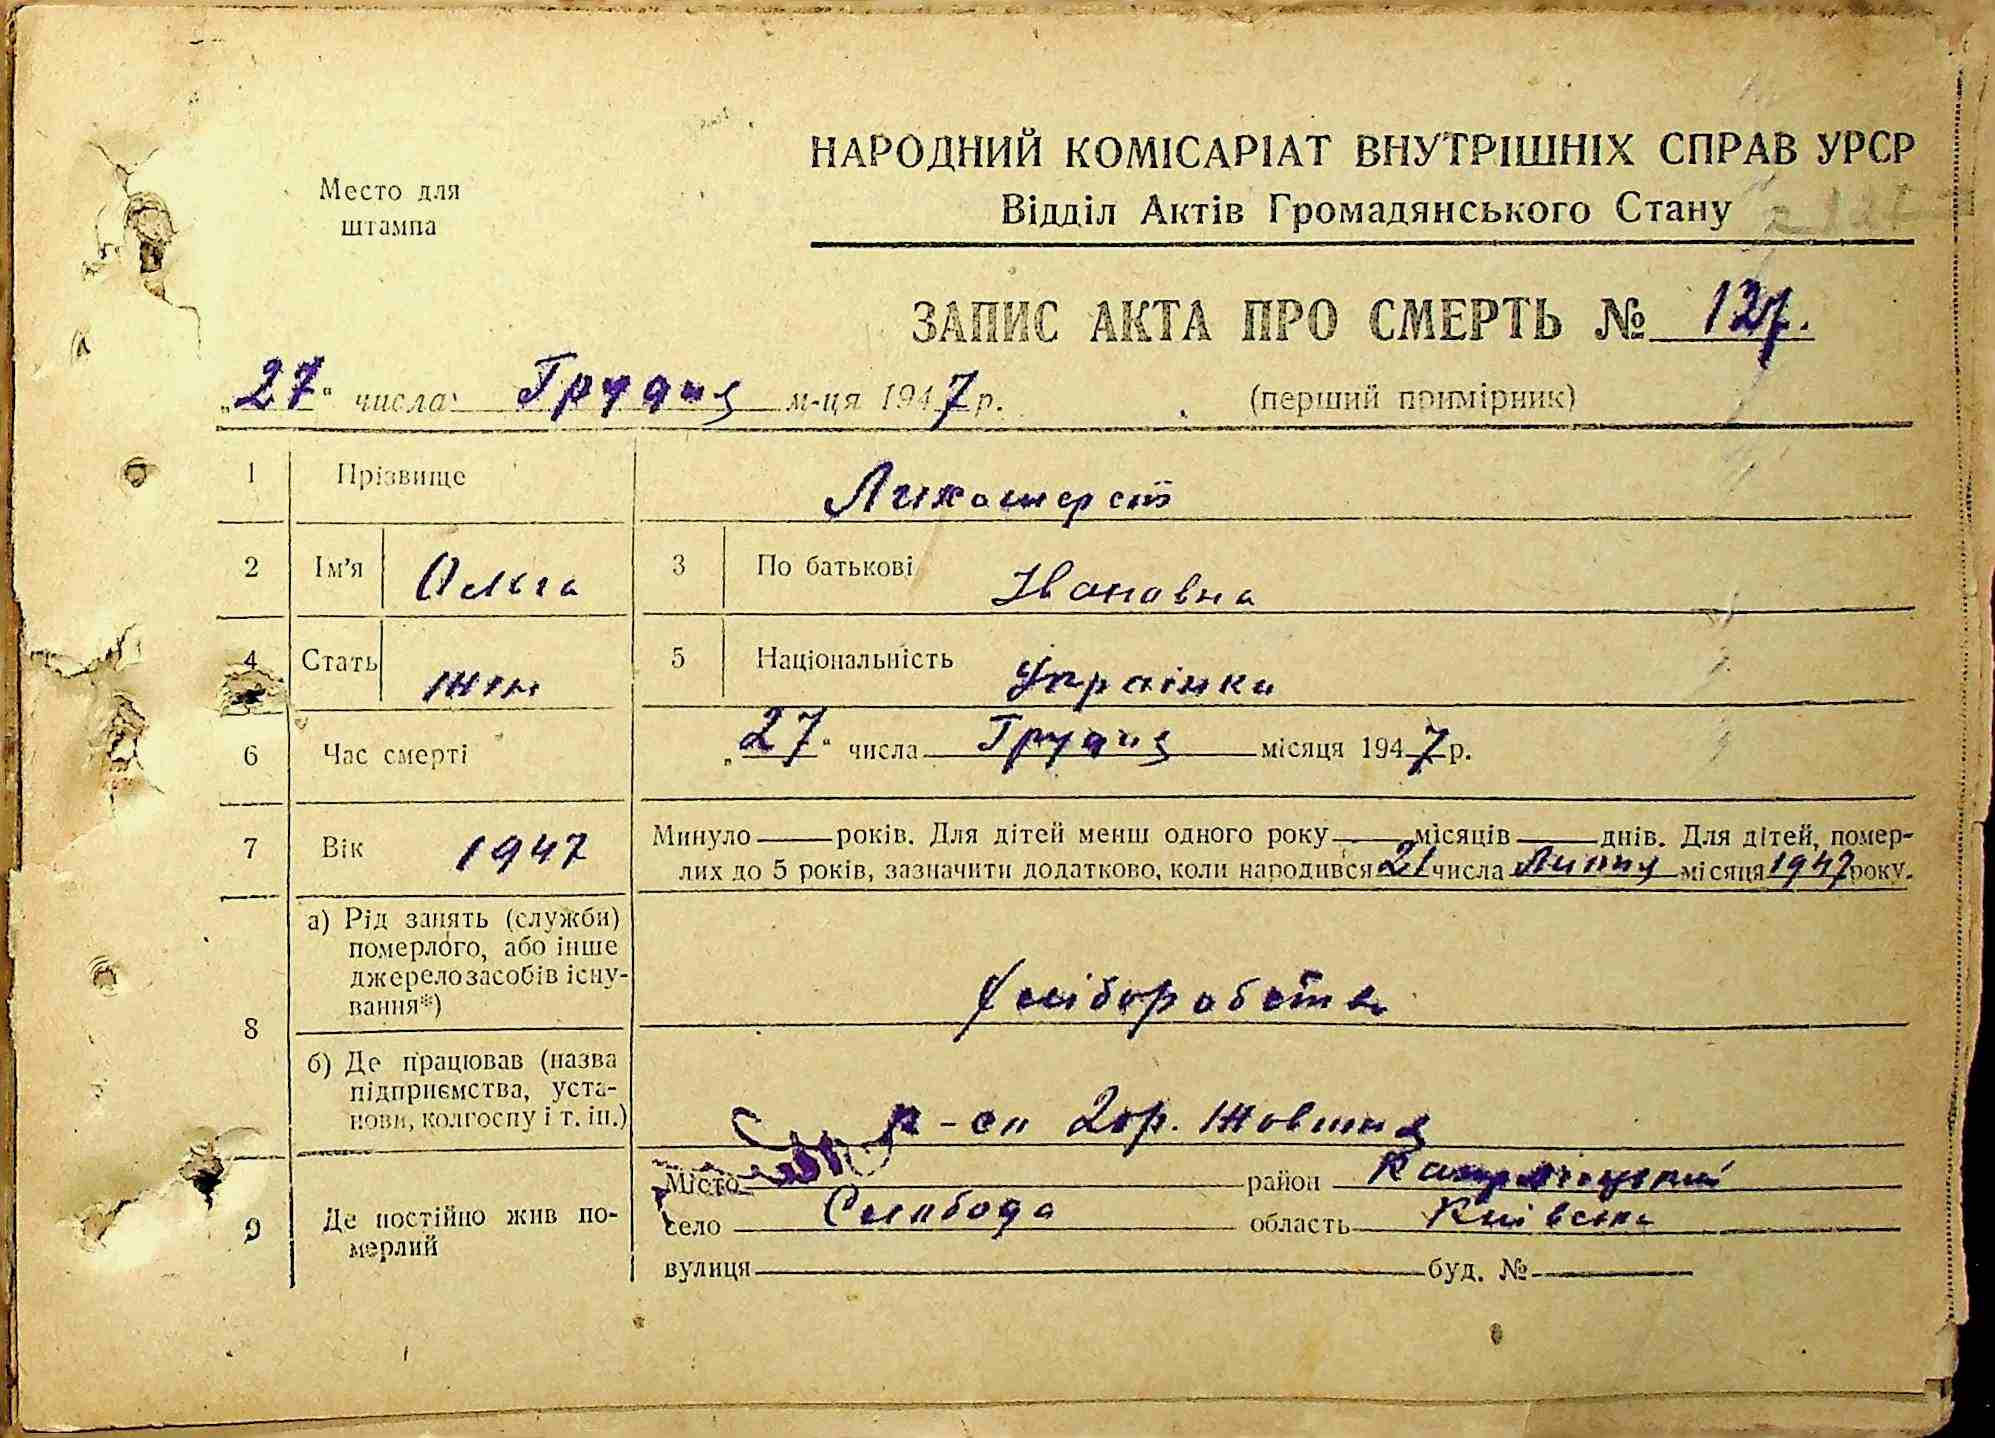 НАРОДНИЙ КОМІСАРІАТ ВНУТРІШНІХ СПРАВ УРСР
Место для штампа
Відділ Актів Громадянського Стану
ЗАПИС АКТА ПРО СМЕРТЬ № 127.
„27" числа Грудня м-ця 1947 р. (перший примірник)
1 Прізвище Лихошерст
2 Ім'я Ольга 3 По батькові Івановна
4 Стать жін 5 Національність Українка
6 Час смерті „27" числа Грудня місяця 1947 р.
7 Вік 1947 Минуло років. Для дітей менш одного року місяців днів. Для дітей, помер-
лих до 5 років, зазначити додатково, коли народився 21 числа Липня місяця 1947 року.
8 а) Рід занять (служби)
померлого, або інше
джерело засобів існу-
вання*)
хліборобство
б) Де працював (назва
підприємства, уста-
нови, колгоспу і т. ін.)
к-сп 2 гор. Жовтня
9 Де постійно жив по-
мерлий
Місто район
село Слобода область Київська
вулиця буд. №